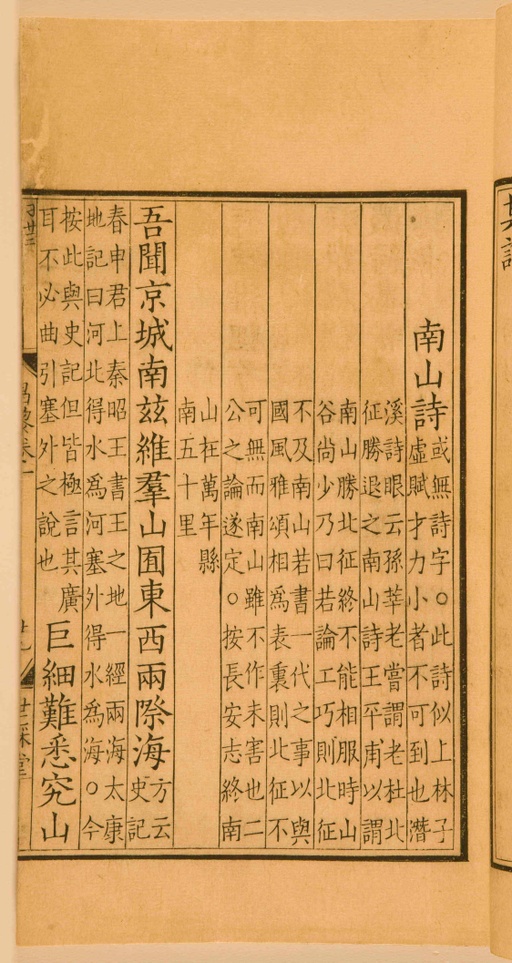 南山詩
或無詩字○此詩似上林子
虛賦才力小者不可到也潛
溪詩眼云孫莘老嘗謂老杜北
征勝退之南山詩王平甫以謂
南山勝北征終不能相服時山
谷尚少乃曰若論工巧則北征
不及南山若書一代之事以與
國風雅頌相爲表裏則北征不
可無而南山雖不作未害也二
公之論遂定○按長安志終南
山在萬年縣
南五十里
吾聞京城南茲維羣山囿東西兩際海
方云
史記
春申君上秦昭王書王之地一經兩海太康
地記曰河北得水爲河塞外得水爲海○今
按此與史記但皆極言其廣
耳不必曲引塞外之說也
巨細難悉究山
昌黎卷一
世綵堂